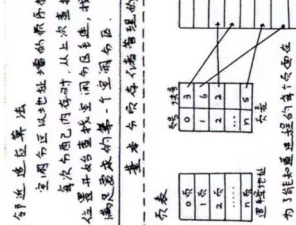 邻近适应算法
空闲分区以地址增的顺序
每次分配内存时从上次查找
位置开始查找空闲分区
满足要求的第一个空闲分区.
基本分页存储管理的
页表
0页
1页
2页
n页
逻辑地址
页号 块号
0 3
1 6
2 2
n 5
页表
为了能知道进程的每个页面在